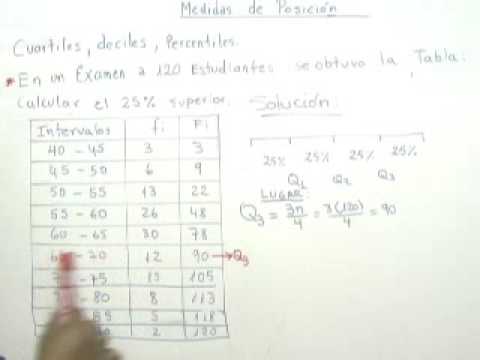 Medidas de Posición
Cuartiles, deciles, Percentiles.
* En un Examen a 120 Estudiantes se obtuvo la Tabla:
Calcular el 25% superior. Solución:
Intervalos fi Fi
40 - 45 3 3
45 - 50 6 9
50 - 55 13 22
55 - 60 26 48
60 - 65 30 78
- 70 12 90 → Q3
- 75 15 105
- 80 8 113
85 5 118
2 120
25% 25% 25% 25%
Q1 Q2 Q3
LUGAR:
Q3 = 3n/4 = 3(120)/4 = 90